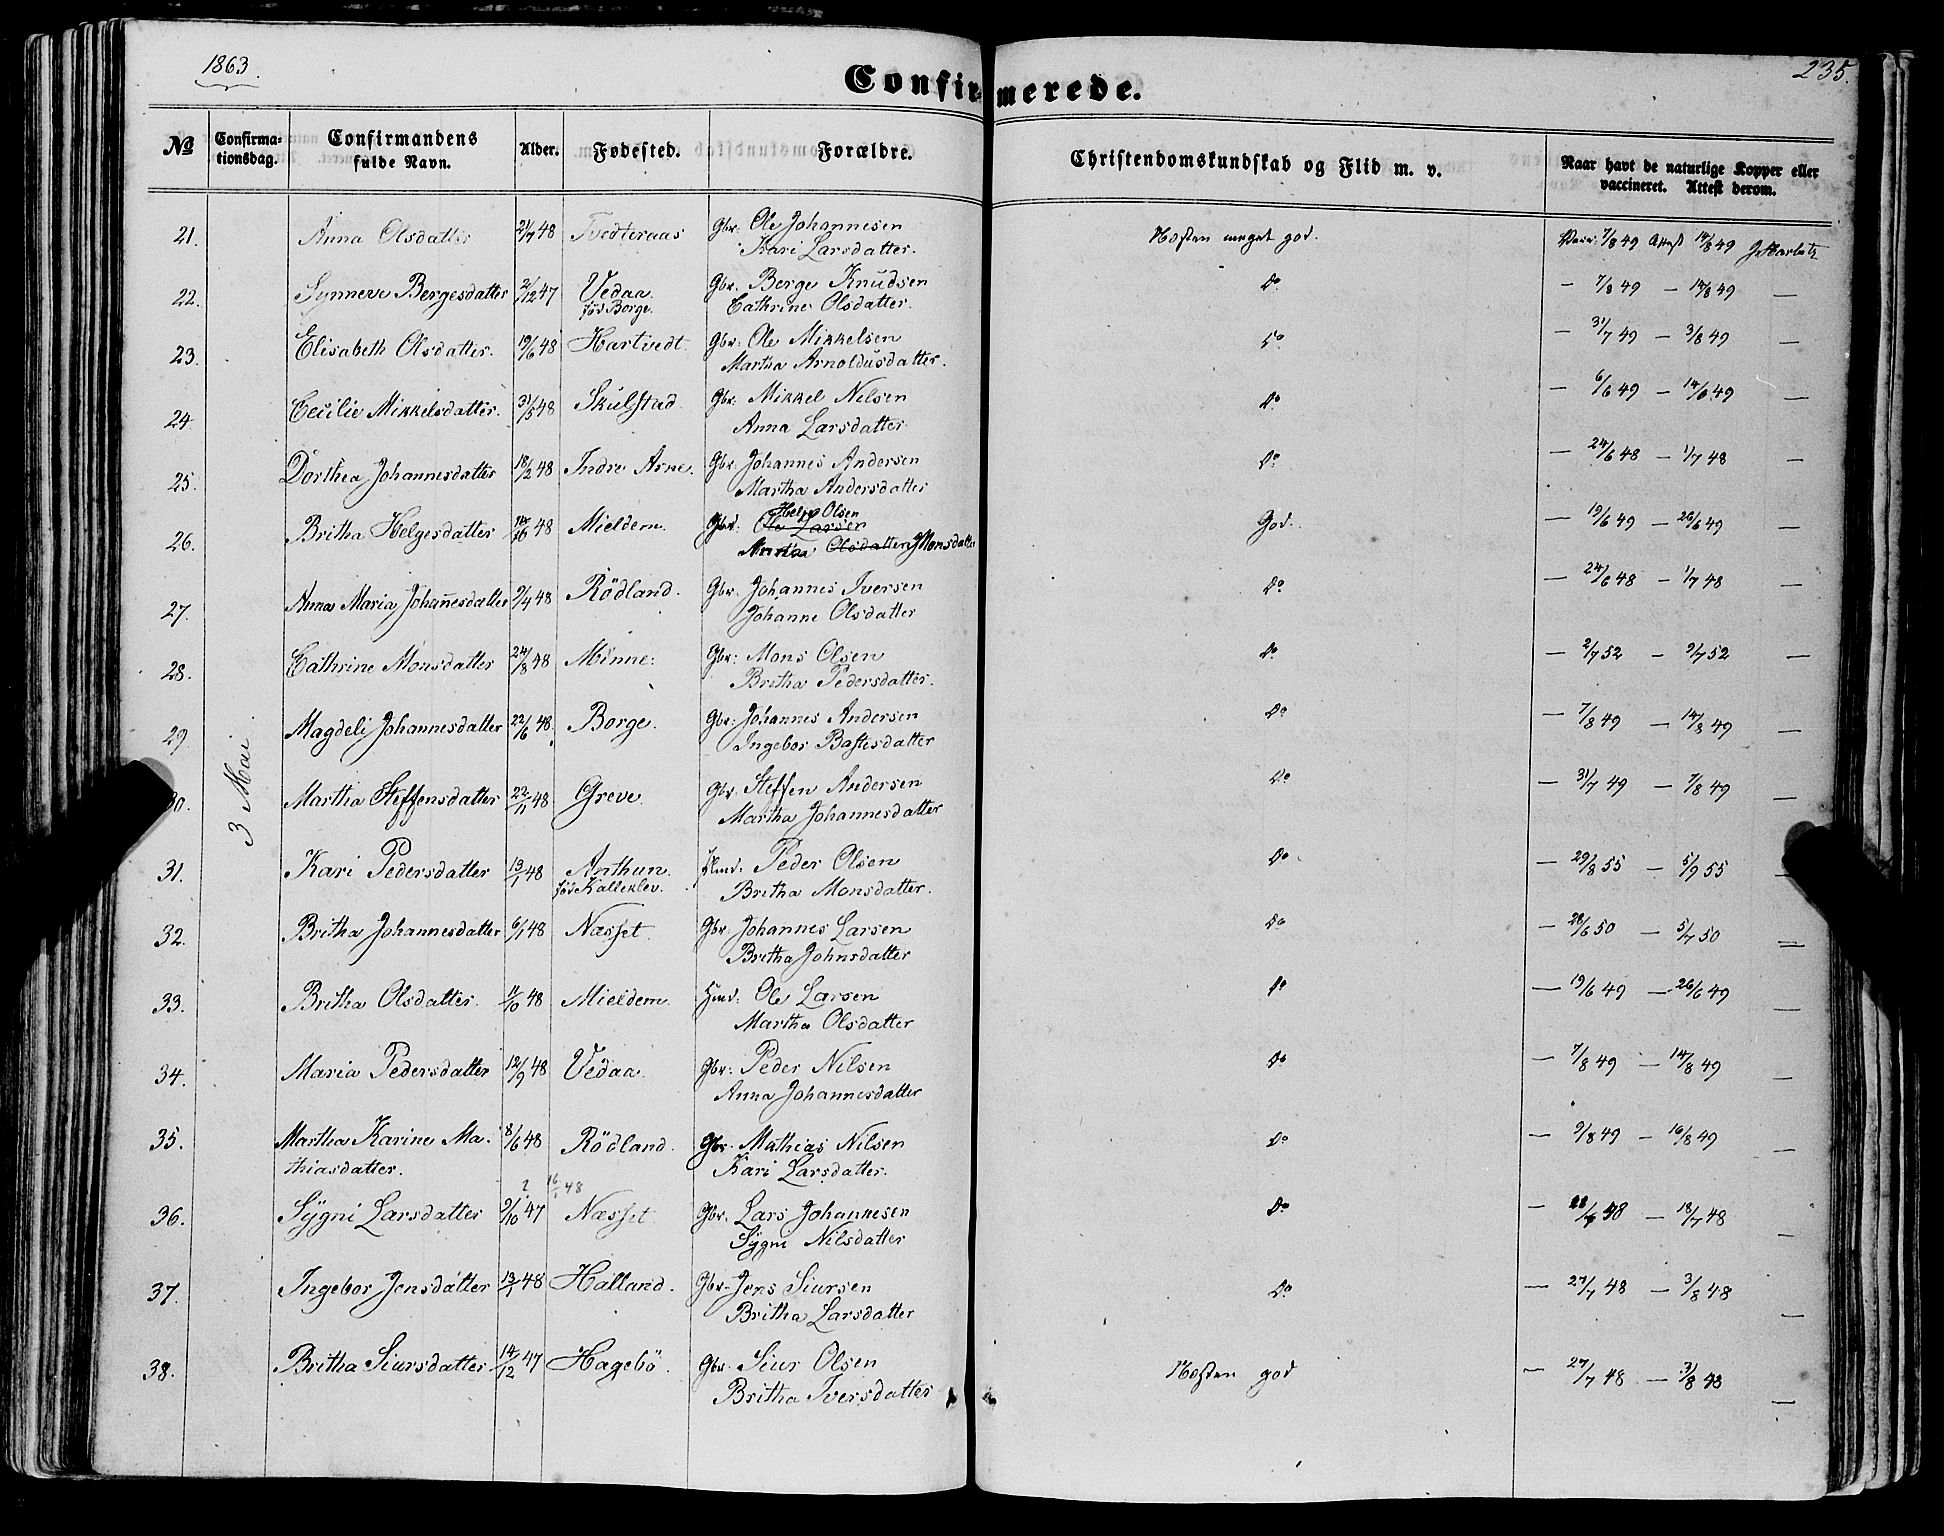 1863.
235.
Confirmerede.
№ Confirma=tionsdag. Confirmandens fulde Navn. Alder. Fødested. Forældre. Christendomskundskab og Flid m. v. Naar havt de naturlige Kopper eller vaccineret. Attest derom.
3 Mai
21. Anna Olsdatter 21/7 48 Tvedteraas Gbr: Ole Johannesen Næsten meget god. Vacc. 7/8 49 Attest 14/8 49
Kari Larsdatter.
22. Synneve Bergesdatter 2/12 47 Vedaa. Gbr: Berge Knudsen Do 7/8 49 — 14/8 49 —
fød Borge. Cathrine Olsdatter.
23. Elisabeth Olsdatter. 19/6 48 Hartvedt. Gbr: Ole Mikkelsen Do — 31/7 49 — 3/8 49 —
Martha Arnoldusdatter.
24. Cecilie Mikkelsdatter. 31/5 48 Skulstad. Gbr: Mikkel Nilsen Do — 6/6 49 — 14/6 49 —
Anna Larsdatter
25. Dorthea Johannesdatter 18/2 48 Indre Arne. Gbr: Johannes Andersen Do — 24/6 48 — 1/7 48 —
Martha Andersdatter
Helge Olsen
26. Britha Helgesdatter 48 Mieldem. Gbr: Ole Larsen God. — 19/6 49 — 26/6 49 —
Olsdatter Monsdatter
27. Anna Maria Johañesdatter 9/4 48 Rödland. Gbr: Johannes Iversen Do — 24/6 48 — 1/7 48 —
Johanne Olsdatter
28. Cathrine Monsdatter 24/8 48 Minne: Gbr: Mons Olsen Do — 2/7 52 — 9/7 52 —
Britha Pedersdatter.
29. Magdeli Johannesdatter 22/6 48. Borge. Gbr: Johannes Andersen Do — 7/8 49 — 14/8 49 —
Ingebor Bastesdatter
30. Martha Steffensdatter 22/11 48 Greve. Gbr. Steffen Andersen Do — 31/7 49 — 7/8 49 —
Martha Johannesdatter
31. Kari Pedersdatter 13/1 48 Arthun. Peder Olsen Do — 29/8 55 — 5/9 55 —
fød Kalleklev. Britha Monsdatter.
32. Britha Johannesdatter 6/1 48 Næsset. Gbr. Johannes Larsen Do — 28/6 50 — 5/7 50 —
Britha Johnsdatter
33. Britha Olsdatter. 11/10 48 Mieldem. Hmd: Ole Larsen Do — 19/6 49 — 26/6 49 —
Martha Olsdatter
34. Maria Pedersdatter 12/9 48 Vedaa. Gbr: Peder Nilsen Do — 7/8 49 — 14/8 49 —
Anna Johannesdatter
35. Martha Karine Ma- 8/6 48 Rödland. Gbr. Mathias Nilsen Do — 9/8 49 — 16/8 49
thiasdatter. Kari Larsdatter.
? 16/1 48
36. Sygni Larsdatter 9/10 47 Næsset. Gbr. Lars Johannesen Do — — 18/7 48 —
Sygni Nilsdatter
37. Ingebor Jensdatter 13/1 48 Halland. Gbr. Jens Siursen Do — 27/7 48 — 3/8 48 —
Britha Larsdatter
38. Britha Siursdatter 14/12 47 Hagebö. Gbr. Siur Olsen Næsten god — 27/7 48 — 3/8 48 —
Britha Iversdatter